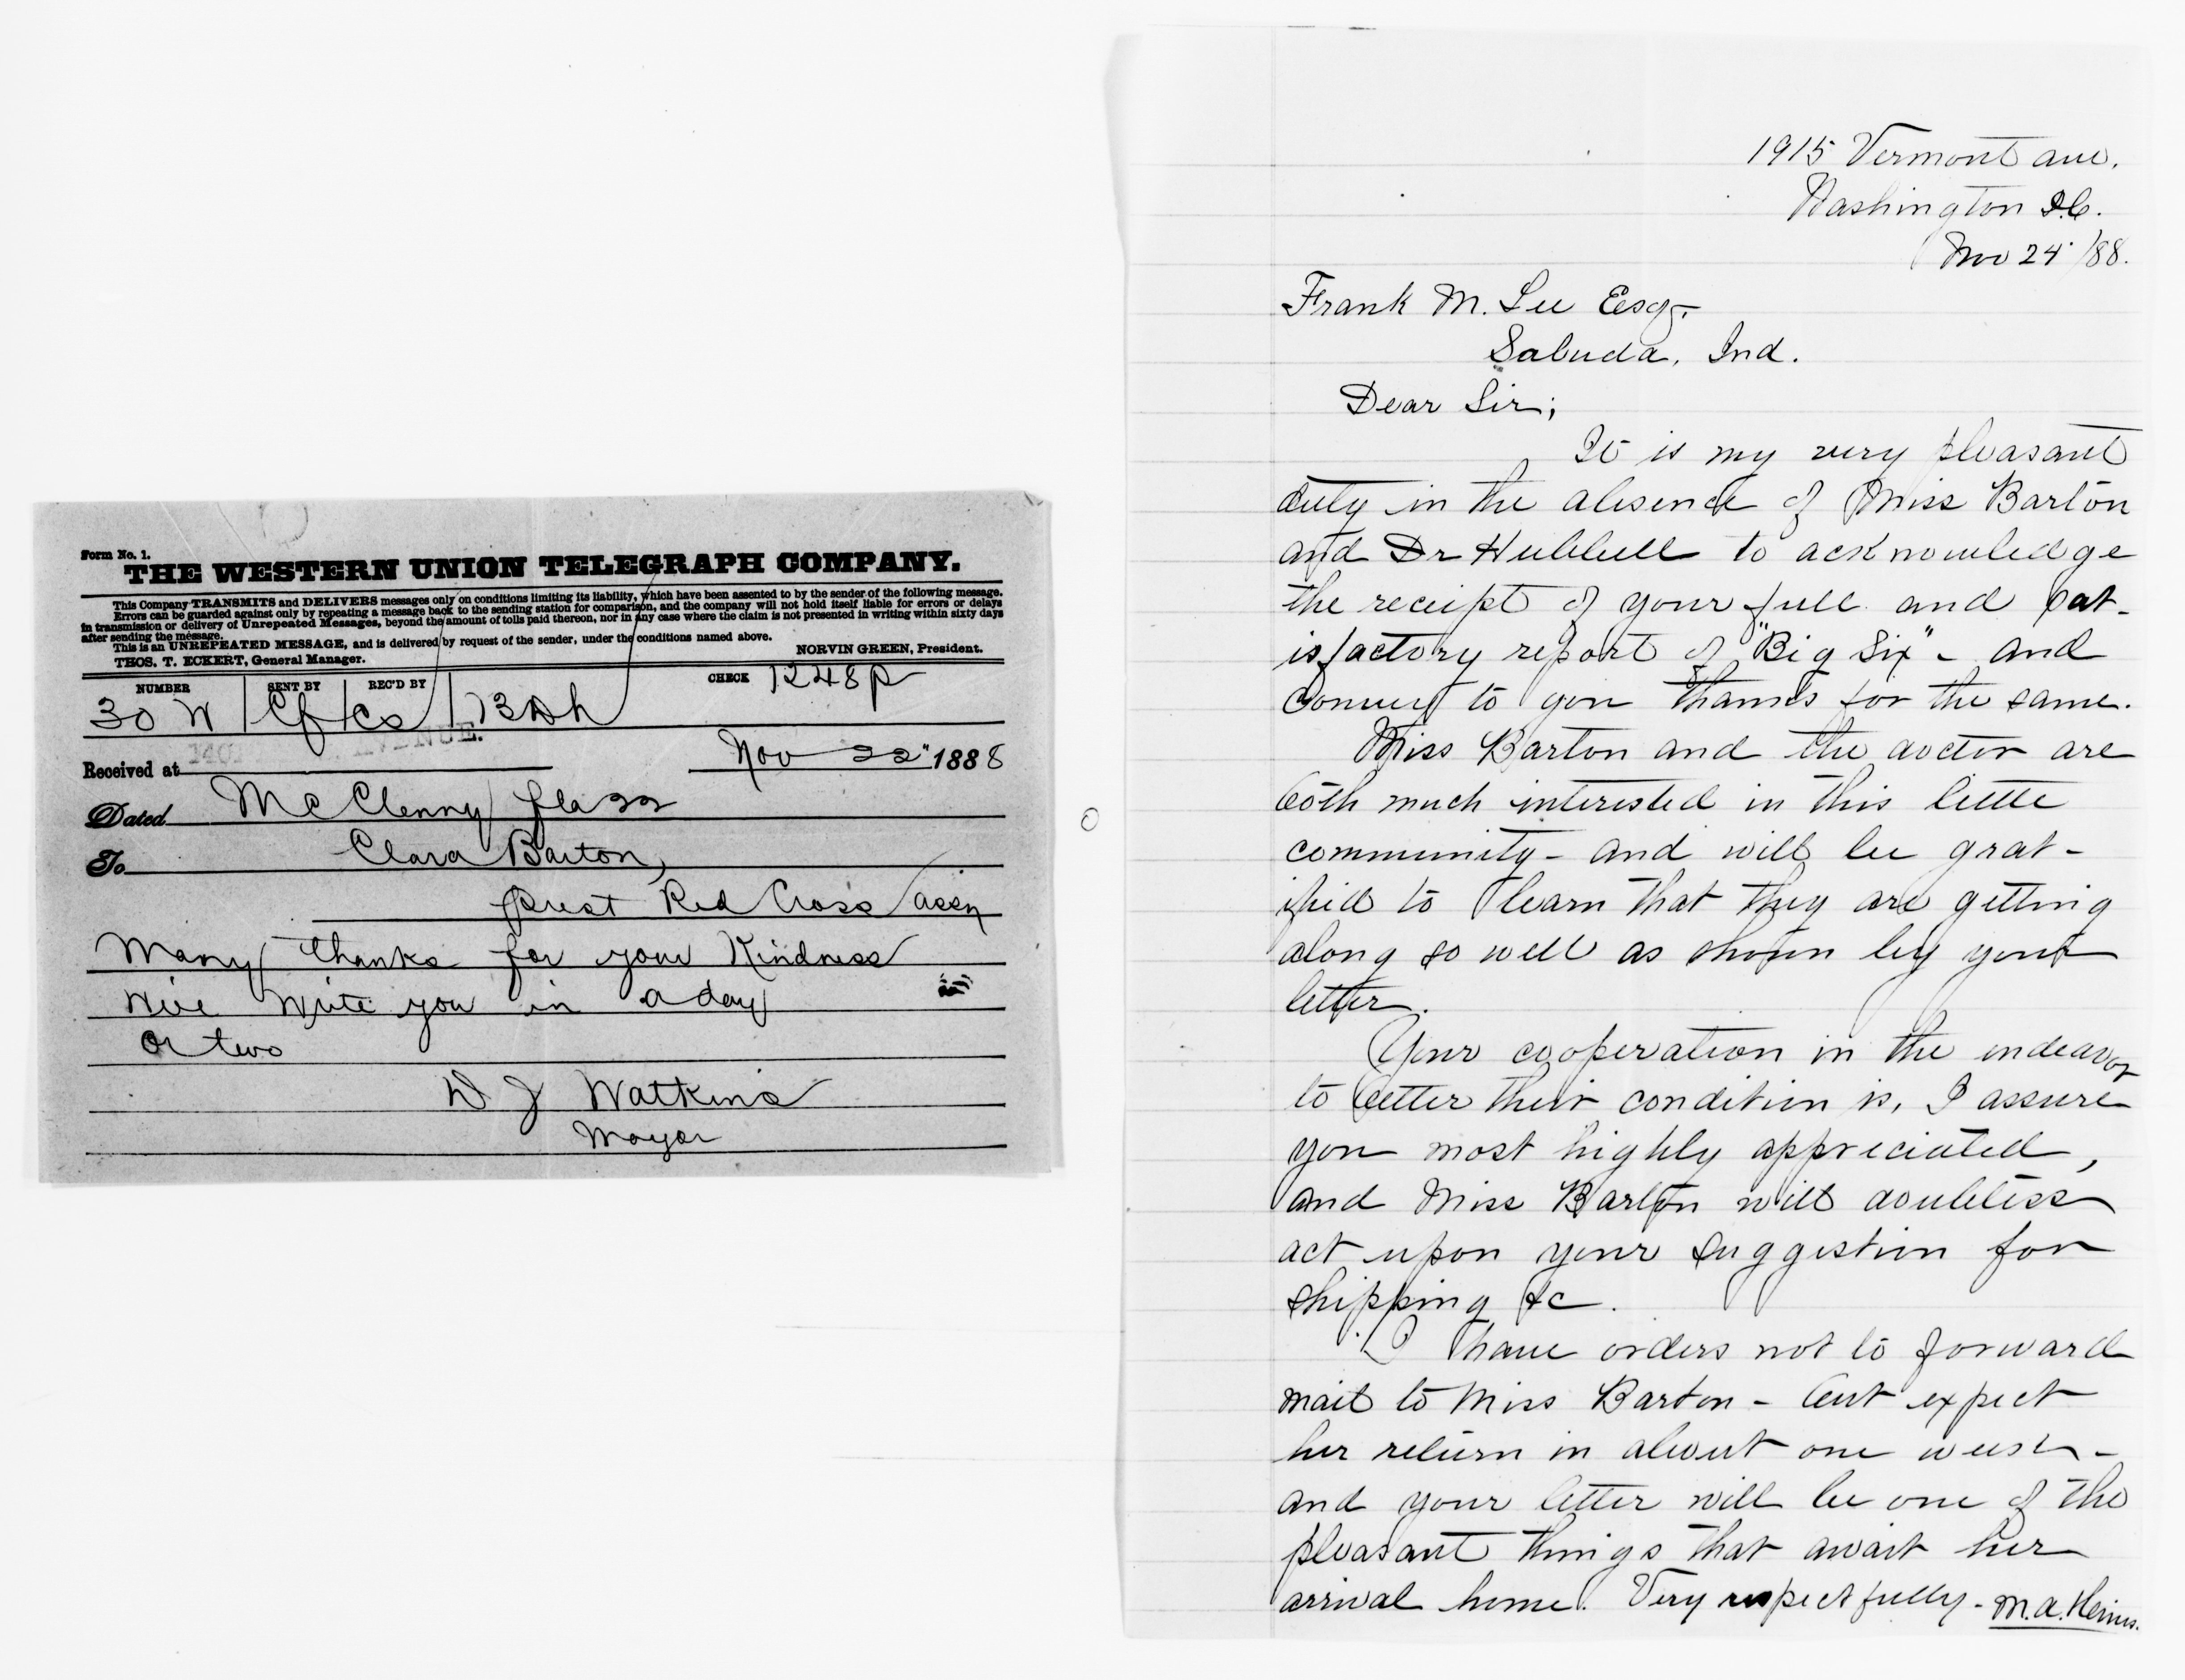 Form No. 1.
THE WESTERN UNION TELEGRAPH COMPANY.
This Company TRANSMITS and DELIVERS messages only on conditions limiting its liability, which have been assented to by the sender of the following message.
Errors can be guarded against only by repeating a message back to the sending station for comparison, and the company will not hold itself liable for errors or delays
in transmission or delivery of Unrepeated Messages, beyond the amount of tolls paid thereon, nor in any case where the claim is not presented in writing within sixty days
after sending the message.
This is an UNREPEATED MESSAGE, and is delivered by request of the sender, under the conditions named above.
THOS. T. ECKERT, General Manager. NORVIN GREEN, President.
NUMBER SENT BY REC'D BY CHECK
30 W Cf Co 13 Dh 1248p
Received at 140 AVENUE. Nov 22" 1888
Dated McClenny Fla 22
To Clara Barton,
Prest Red Cross Assn
Many thanks for your Kindness
Will Write you in a day
or two
D J Watkins
Mayor
1915 Vermont ave.
Washington D.C.
Nov 24 /88.
Frank M. Lee Esq.
Saluda, Ind.
Dear Sir;
It is my very pleasant
duty in the absence of Miss Barton
and Dr Hubbell to acknowledge
the receipt of your full and sat-
isfactory report of "Big Six" - and
convey to you thanks for the same.
Miss Barton and the doctor are
both much interested in this little
community - and will be grat-
ified to learn that they are getting
along so well as shown by your
letter.
Your cooperation in the endeavor
to better their condition is, I assure
you most highly appreciated,
and Miss Barton will doubtless
act upon your suggestion for
shipping &c.
I have orders not to forward
mail to Miss Barton - but expect
her return in about one week -
and your letter will be one of the
pleasant things that await her
arrival home. Very respectfully - M.A.